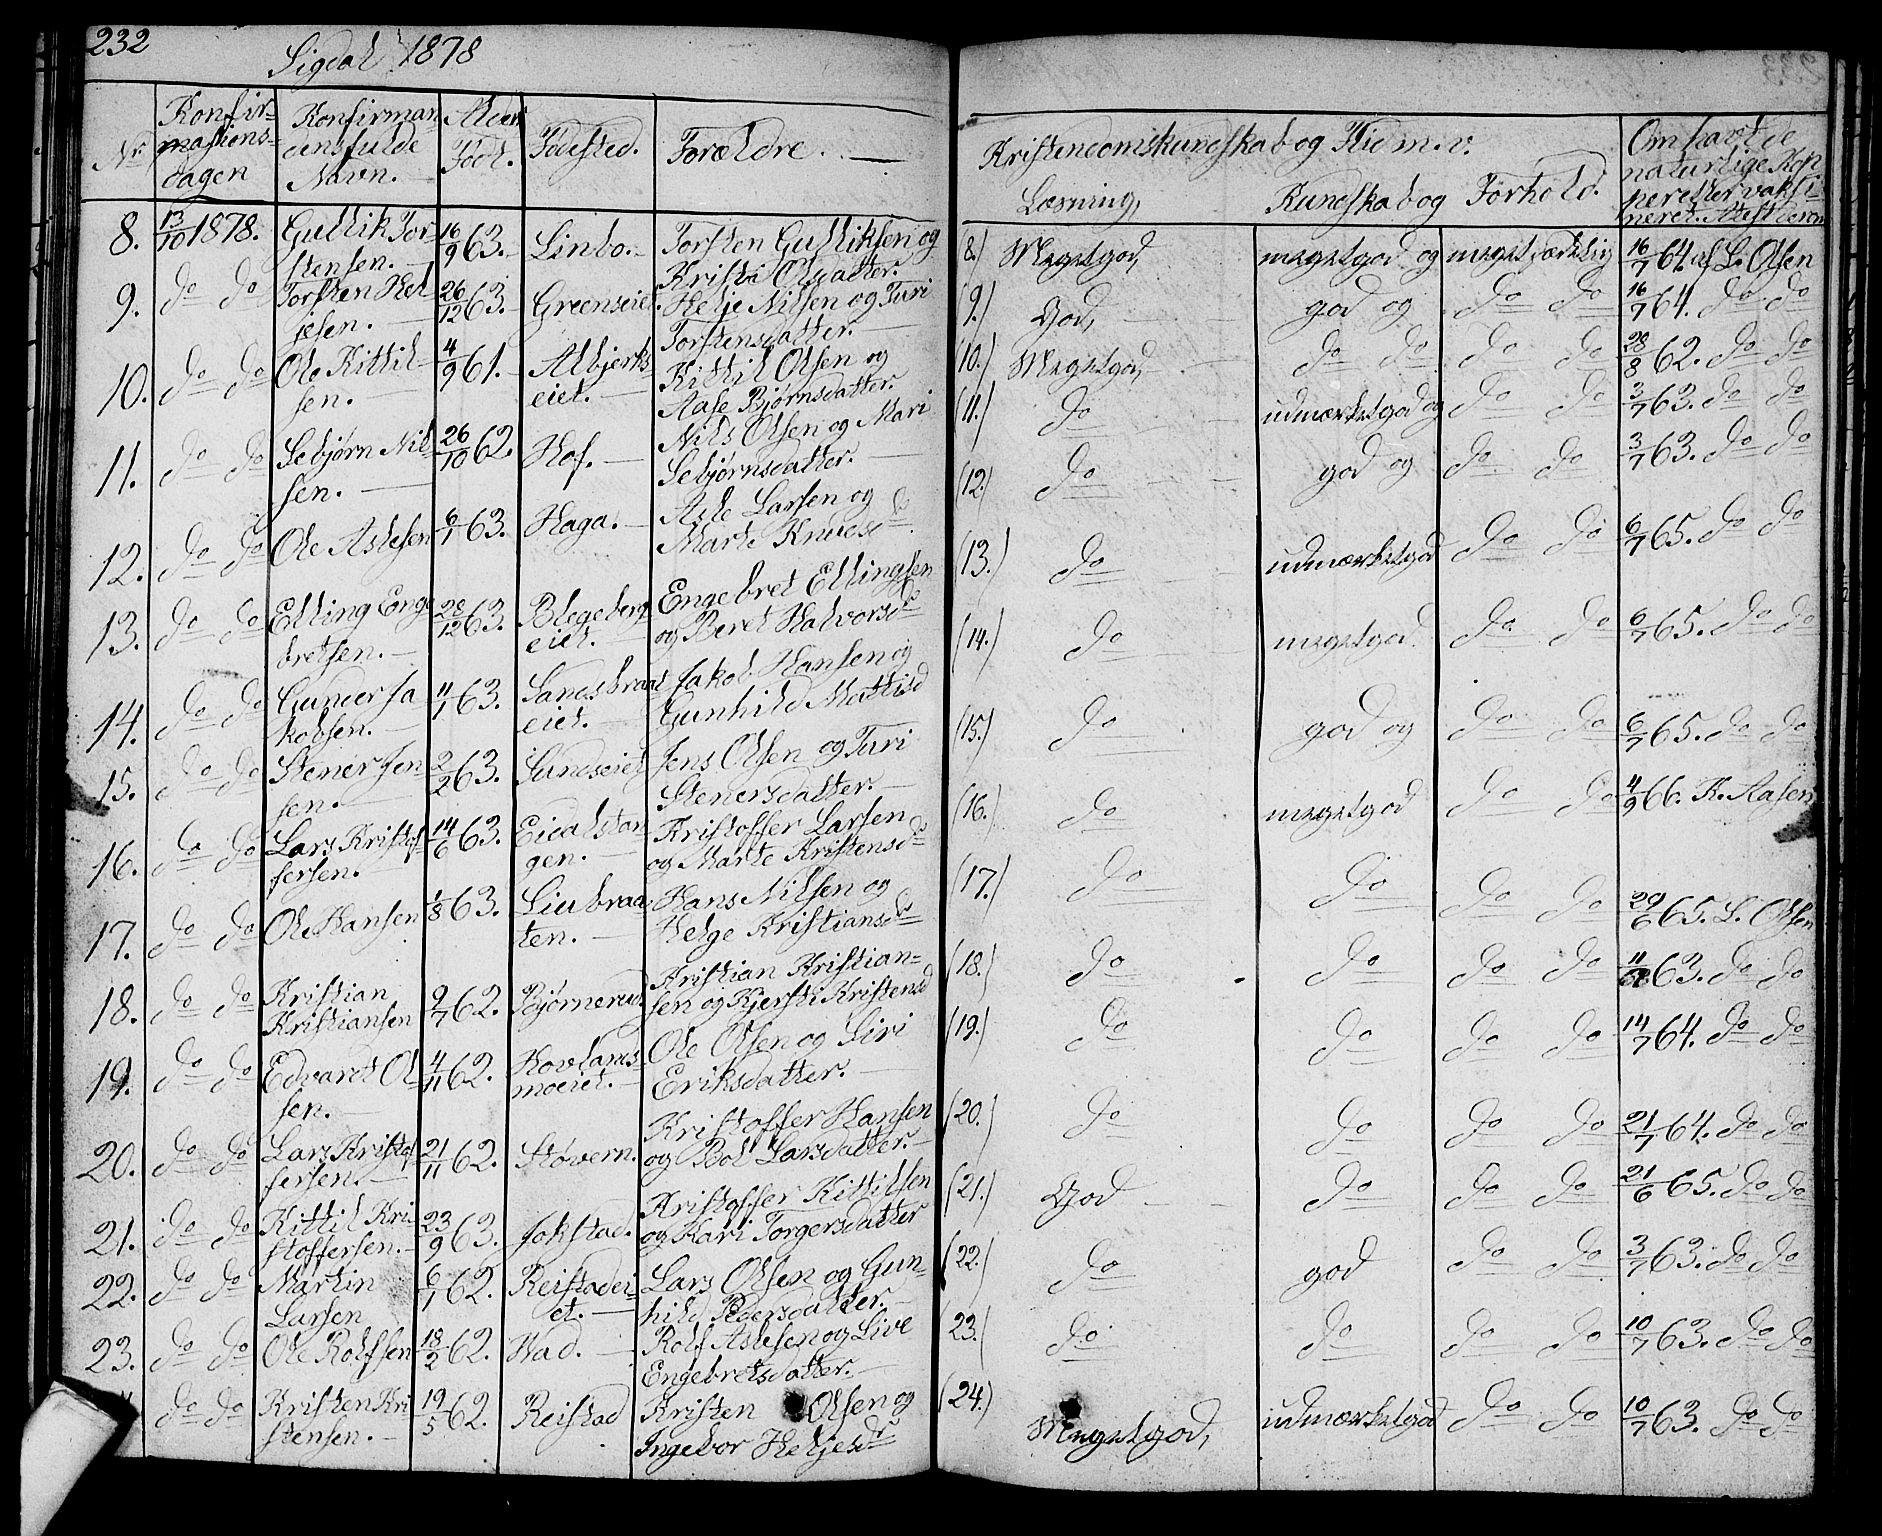 232
Sigdal 1878
Nr. Konfirmasions-dagen Konfirmandens fulde Navn. Alder Född. Födested. Forældre.
8. 13/10 1878. Gullik Torstensen. 16/9 63. Linbo. Torsten Gulliksen og Kristi Olsdatter.
9. do do Torsten Heljesen. 26/12 63. Greenseiet. Helje Nilsen og Turi Torstensdatter.
10. do do Ole Kittilsen. 4/9 61. Albjerkseiet. Kittil Olsen og Aase Bjørnsdatter.
11. do do Sebjørn Nilsen. 26/10 62. Hof. Nils Olsen og Mari Sebjørnsdatter.
12. do do Ole Aslesen 6/1 63. Haga. Asle Larsen og Marte Knudsd
13. do do Elling Engebretsen. 28/12 63. Blegebergeiet. Engebret Ellingsen og Beret Halvorsdr
14. do do Gunder Jakobsen. 11/1 63. Sandsbraateiet. Jakob Hansen og Gunhild Mattisd
15. do do Stener Jensen. 2/2 63. Sundseiet Jens Olsen og Turi Stenersdatter.
16. do do Lars Kristoffersen. 14/6 63. Eidalstangen. Kristoffer Larsen og Marte Kristensdr
17. do do Ole Hansen 1/8 63. Liubraaten. Hans Nilsen og Helge Kristiansdr
18. do do Kristian Kristiansen 9/7 62. Bjørnerud. Kristian Kristiansen og Kjersti Kristensd
19. do do Edvardt Olsen. 4/11 62. Hovlandsmoeiet. Ole Olsen og Siri Eriksdatter.
20. do do Lars Kristoffersen. 21/11 62. Støvern. Kristoffer Hansen og Bol Larsdatter.
21. do do Kittil Kristoffersen. 23/9 63. Jokstad. Kristoffer Kittilsen og Kari Torgersdatter
22. do do Martin Larsen 6/1 62. Reistadeiet. Lars Olsen og Gunhild Pedersdatter.
23. do do Ole Rolfsen 18/2 62. Wad. Rolf Aslesen og Live Engebretsdatter.
do do Kristen Kristensen. 19/5 62. Reistad Kristen Olsen og Ingebor Heljesdr
Kristendomskundskab og Flid m. v.
Læsning, Kundskab og Forhold.
Om havt de naturlige Kopper eller vaksineret. Attest derom
(8.) Megetgod, megetgod og megetsædelig 16/7 64 af L. Olsen
(9.) God, god og do do 16/7 64. do do
(10.) Megetgod, do do do do 28/8 62. do do
(11.) do udmærketgod og do do 3/7 63. do do
(12.) do god og do do 3/7 63. do do
(13.) do udmærketgod do do 6/7 65. do do
(14.) do megetgod do do 6/7 65. do do
(15.) do god og do do 6/7 65. do do
(16.) do megetgod do do 4/9 66. K. Aasen
(17.) do do do do 29/6 65. L. Olsen
(18.) do do do do 63. do do
(19.) do do do do 14/7 64. do do
(20.) do do do do 21/7 64. do do
(21.) God do do do 21/6 65. do do
(22.) do god do do 3/7 63. do do
23. do do do do 10/7 63. do do
(24.) Megetgod, udmærketgod do do 10/7 63. do do